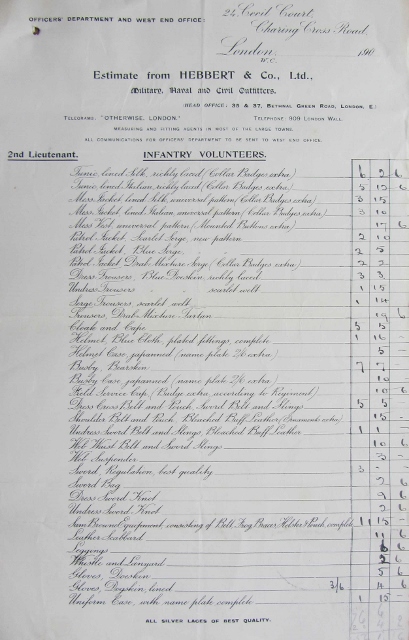 OFFICERS' DEPARTMENT AND WEST END OFFICE: 24 Cecil Court,
Charing Cross Road,
London, 190
W.C.
Estimate from HEBBERT & Co., Ltd.,
Military, Naval and Civil Outfitters.
HEAD OFFICE: 35 & 37, BETHNAL GREEN ROAD, LONDON, E.
TELEGRAMS: "OTHERWISE, LONDON." TELEPHONE: 909 LONDON WALL
MEASURING AND FITTING AGENTS IN MOST OF THE LARGE TOWNS.
ALL COMMUNICATIONS FOR OFFICERS' DEPARTMENT TO BE SENT TO WEST END OFFICE.
2nd Lieutenant. INFANTRY VOLUNTEERS.
Tunic lined Silk, richly laced (Collar Badges extra) 6 2 6
Tunic, lined Italian, richly laced (Collar Badges extra) 5 12 6
Mess Jacket lined Silk, universal pattern (Collar Badges extra) 3 15
Mess Jacket lined Italian, universal pattern (Collar Badges extra) 3 10
Mess Vest, universal pattern (Mounted Buttons extra) 17 6
Patrol Jacket, Scarlet Serge, new pattern 2 10
Patrol Jacket, Blue Serge 2 5
Patrol Jacket Drab Mixture Serge (Collar Badges extra) 2 2
Dress Trousers, Blue Doeskin, richly laced 3 3
Undress Trousers " " scarlet welt 1 15
Serge Trousers, scarlet welt 1 14
Trousers, Drab Mixture Tartan 19 6
Cloak and Cape 5 5
Helmet, Blue Cloth, plated fittings, complete 1 16 -
Helmet Case japanned (name plate 2/6 extra) 5 -
Busby, Bearskin 7 7
Busby Case japanned (name plate 2/6 extra) 10
Field Service Cap (Badge extra, according to Regiment) 10 6
Dress Cross Belt and Pouch, Sword Belt and Slings 5 5
Shoulder Belt and Pouch, Bleached Buff Leather (Ornaments extra) 15 -
Undress Sword Belt and Slings, Bleached Buff Leather 1 1 -
Web Waist Belt and Sword Slings 10 6
Web Suspender 3 -
Sword, Regulation, best quality 3 -
Sword Bag 2 6
Dress Sword Knot 9 6
Undress Sword Knot 2 6
Sam Browne Equipment consisting of Belt, Frog, Braces, Holster & Pouch, complete 1 15 -
Leather Scabbard 11 6
Leggings 6
Whistle and Lanyard 2 6
Gloves, Doeskin 5 6
Gloves, Dogskin, lined 3/6 4 6
Uniform Case, with name plate complete 1 15 -
ALL SILVER LACES OF BEST QUALITY.